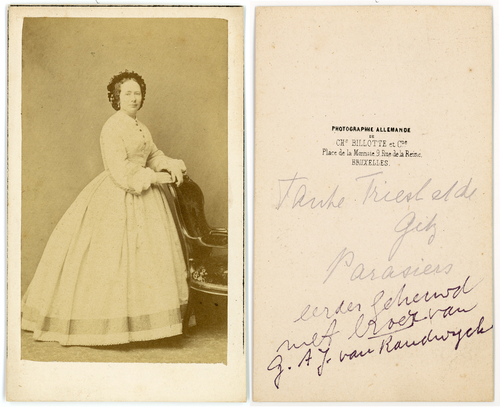 PHOTOGRAPHIE ALLEMANDE
DE
CH^s BILLOTTE et C^ie
Place de la Monnaie, 9 Rue de la Reine.
BRUXELLES.
Tante
Parasiers
eerder gehuwd
met broer van
G. A. J. van Randwyck